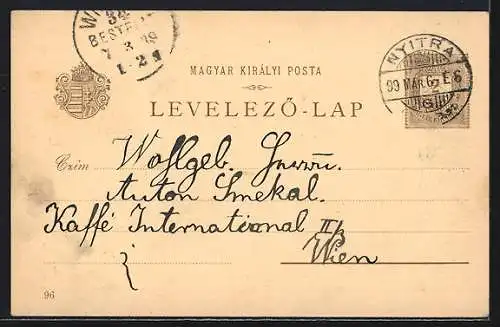 WI
BESTELLT
7 3 99
NYITRA
99 MAR 6 E 6
2
MAGYAR KIRÁLYI POSTA
LEVELEZŐ-LAP
Czim Wohlgeb. Herrn
Anton Smekal.
Kaffé International
II/3
Wien
96